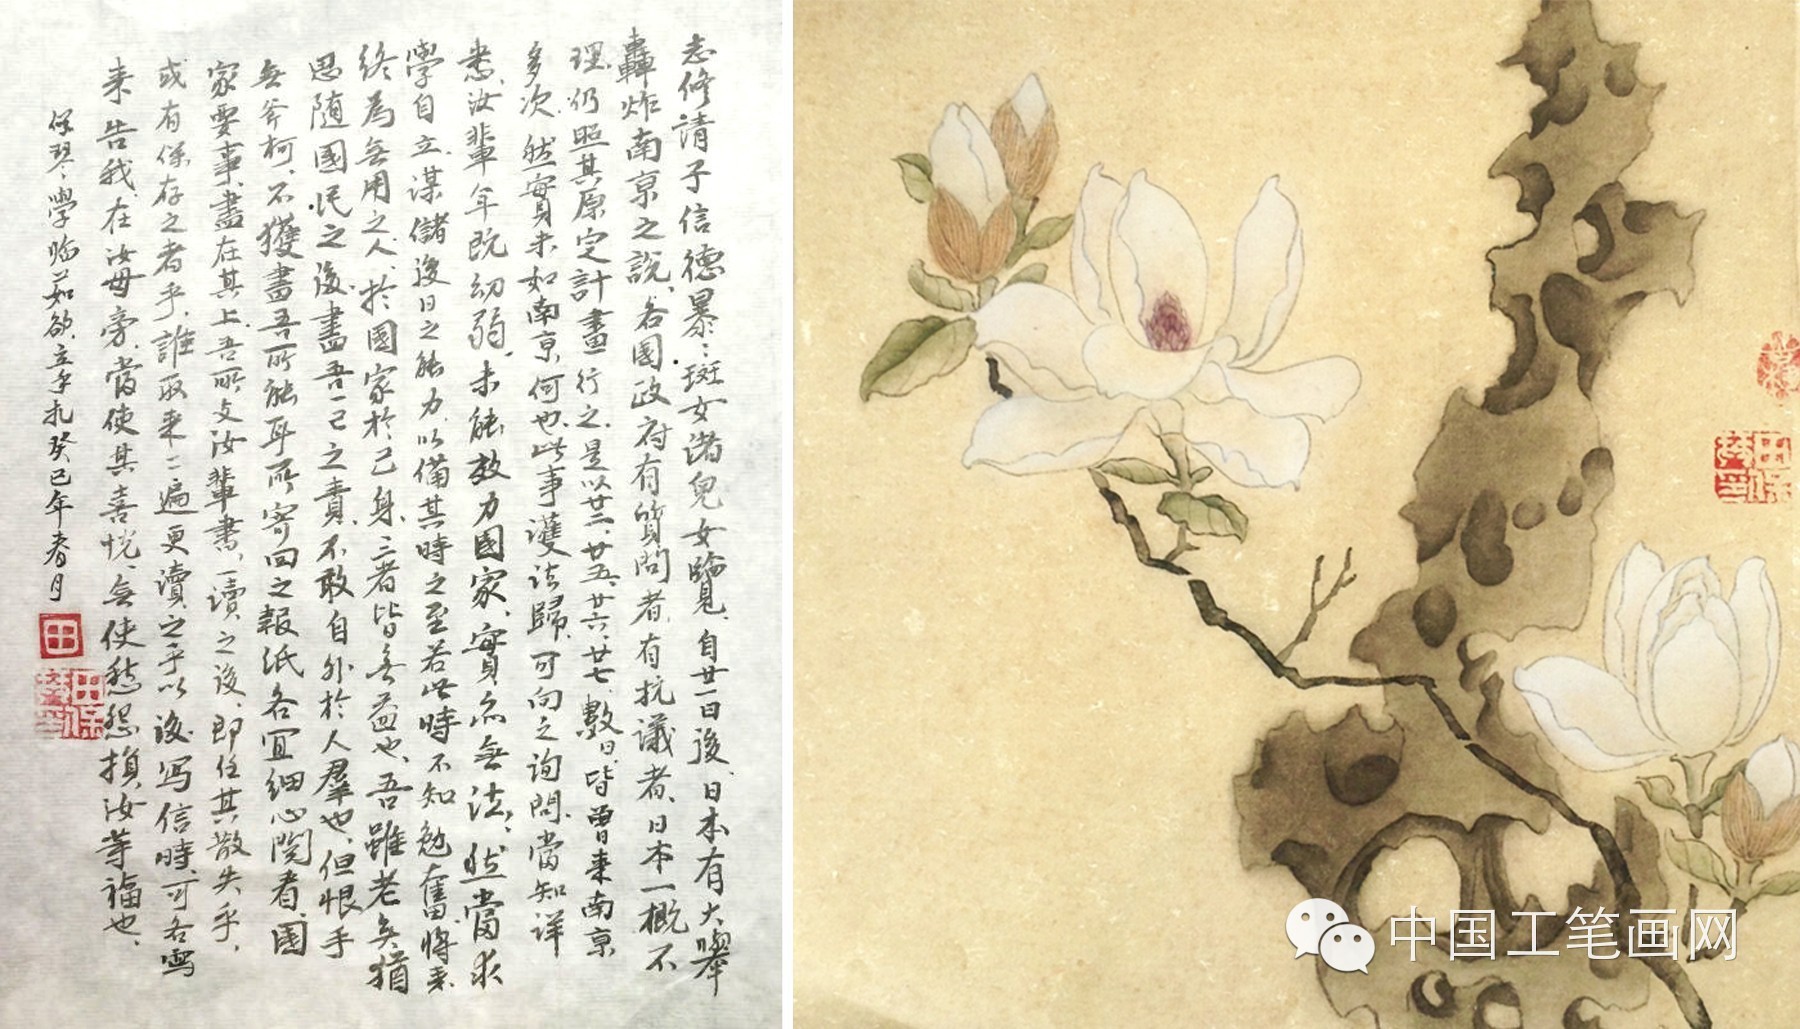 志修請子信德暴：斑女諸兒女驗覽、自廿一日後、日本有大舉
轟炸南京之說、各國政府有質問者、有抗議者、日本一概不
理、仍照其原定計畫行之、是以廿二、廿五、廿六、廿七、數日、皆曾来南京
多次、然實未如南京何也、此事護法歸、可向之詢問、當知詳
悉、汝輩年既幼弱、未能效力國家、實亦無法、然當求
學自立、謀儲後日之能力、以備其時之至、若此時不知勉奮、將来
終為無用之人、於國家於己身、三者皆無益也、吾雖老矣、猶
思随國民之後、盡吾一己之責、不敢自外於人羣也、但恨手
無斧柯、不獲盡吾所能耳、所寄回之報紙、各宜細心閱看、國
家要事、盡在其上、吾所文汝輩書、一讀之後、即任其散失乎、
或有保存之者乎、誰取来一遍更讀之乎、以後写信時、可各寫
来告我、在汝母旁、當使其喜悦、無使愁怨、損汝等福也、
保琴學臨茹欲立手札癸巳年春月
田
田保琴印
田保琴印
中国工笔画网